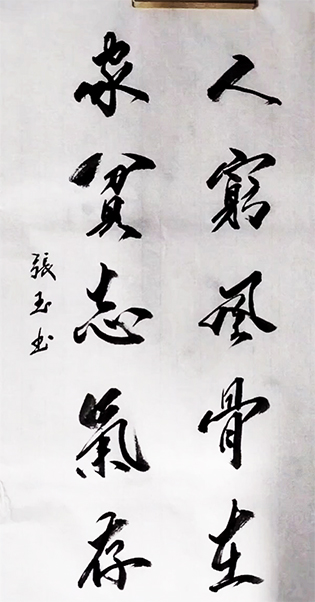 人窮風骨在
家貧志氣存
張玉書